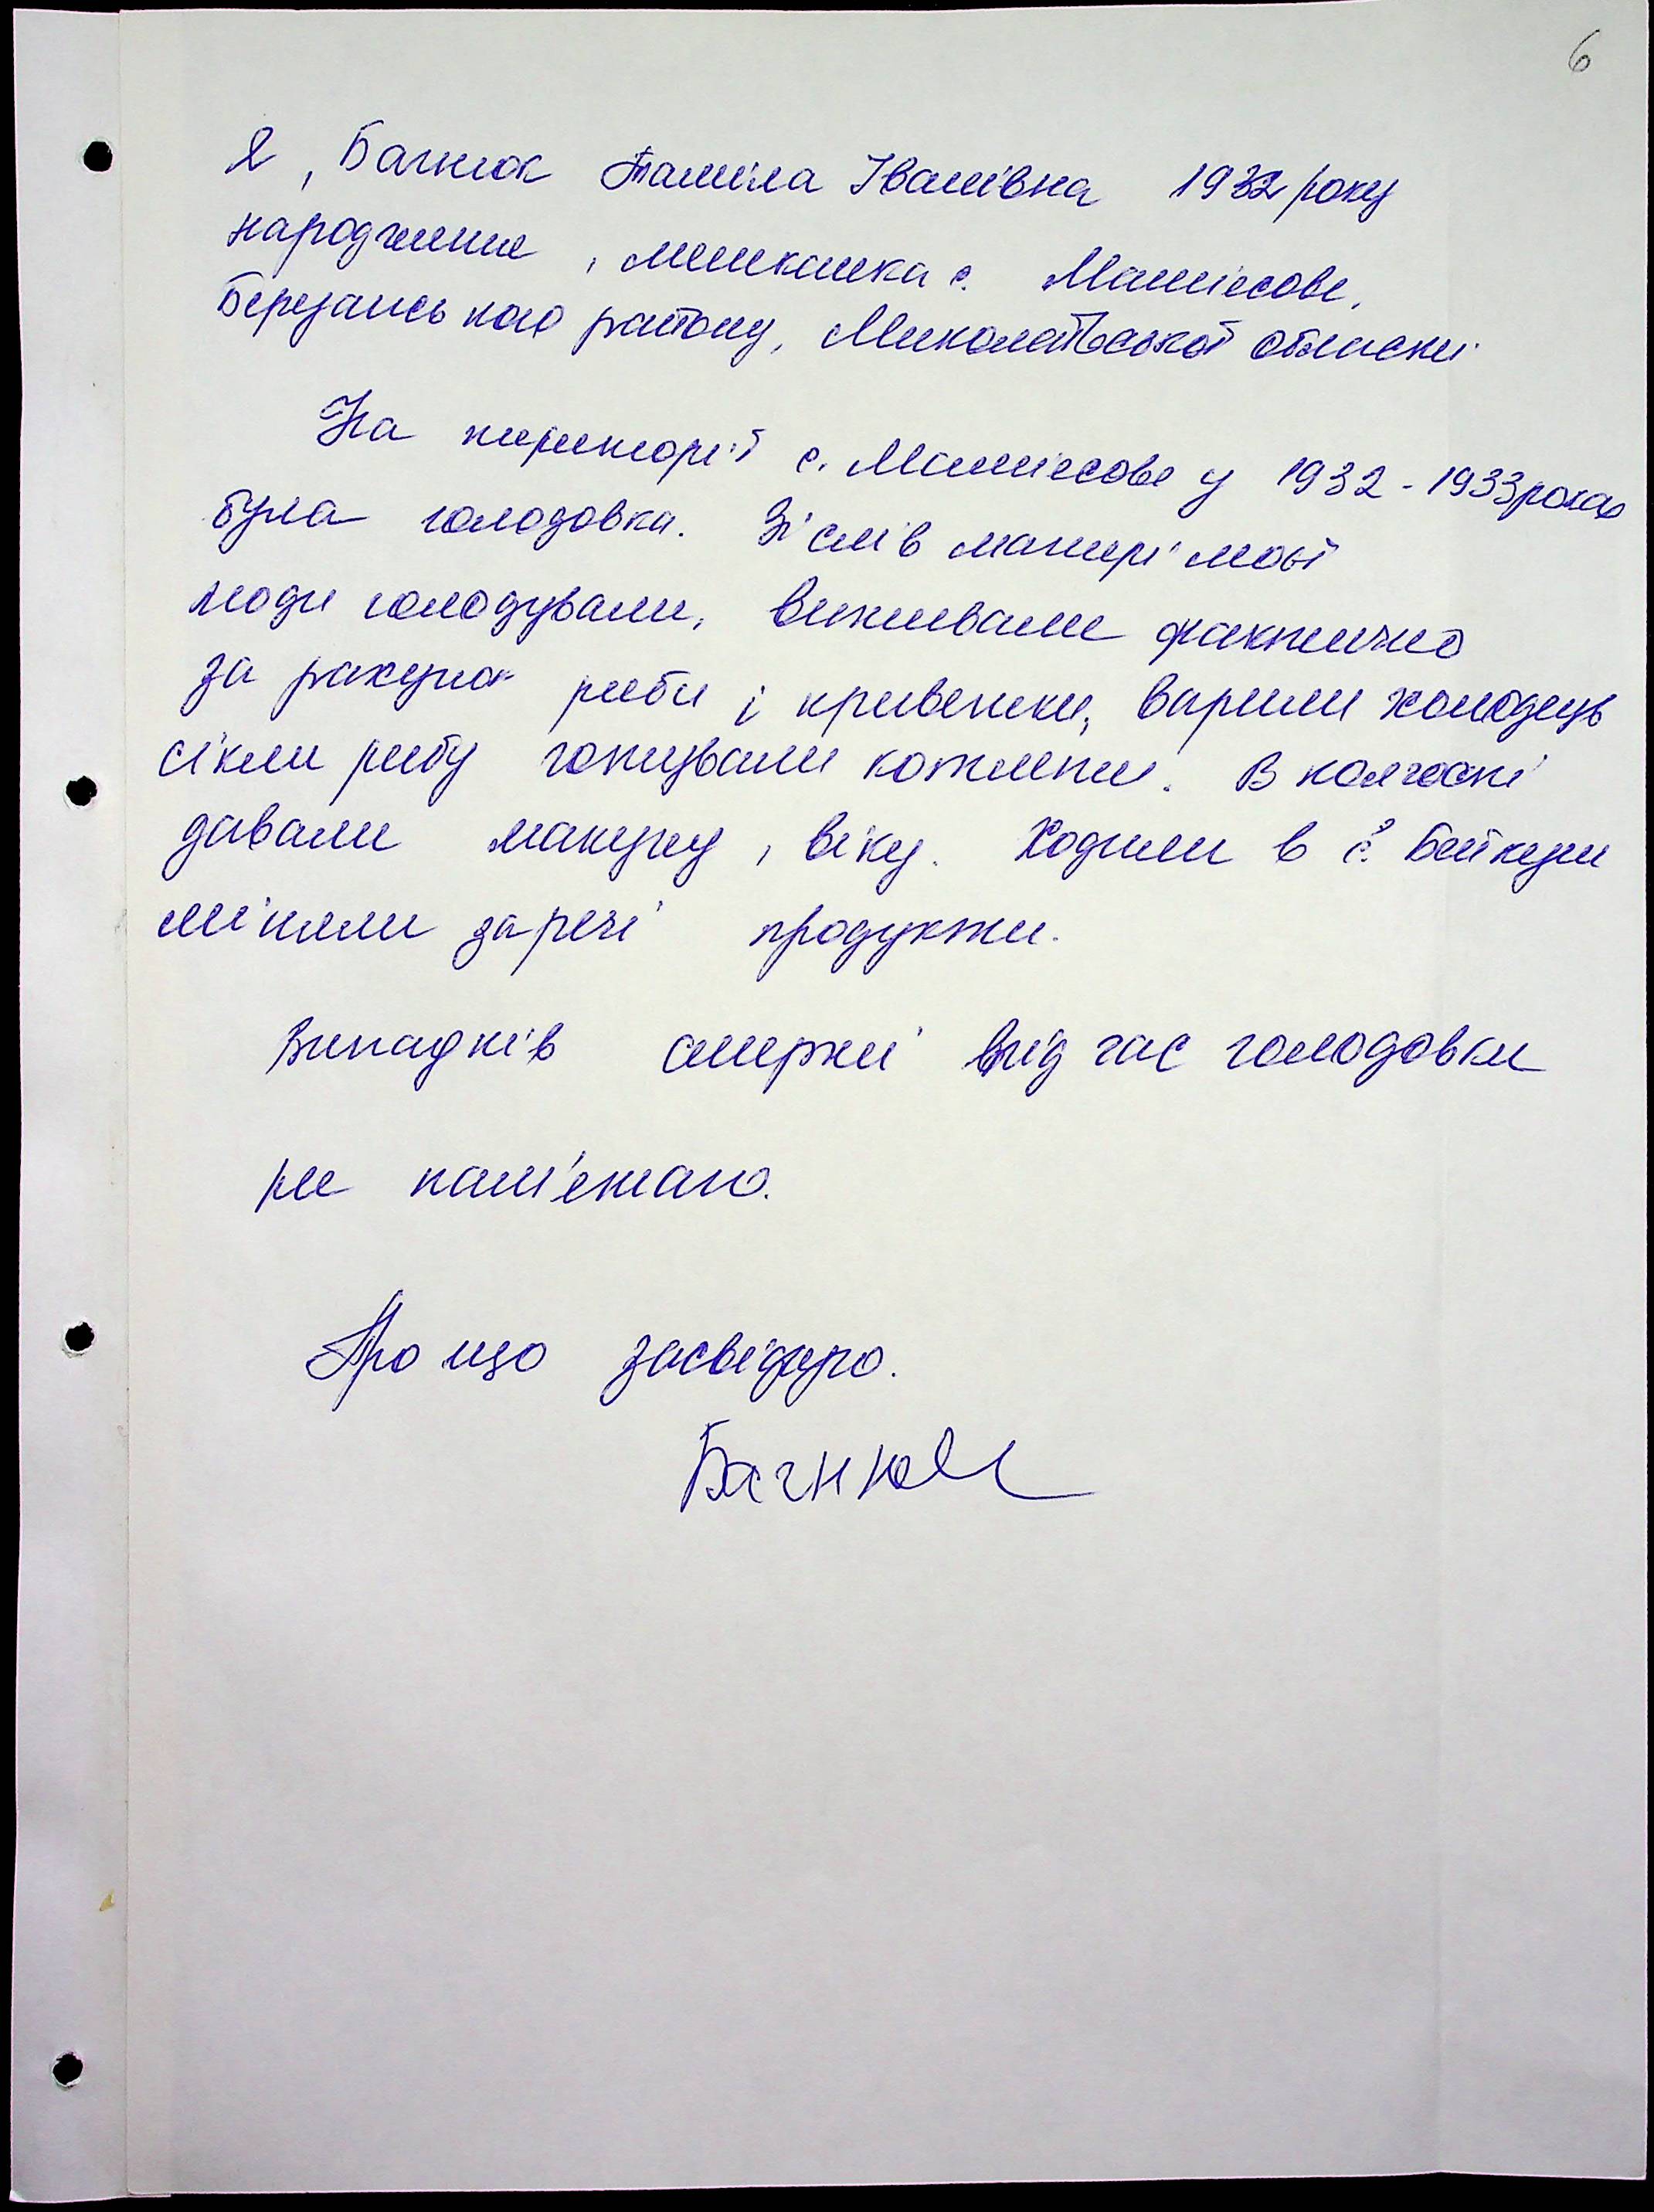 6
Я, Багнюк Таміла Іванівна 1932 року
народження, мешканка с. Матіясове,
Березанського району, Миколаївської області.
На території с. Матіясове у 1932-1933 роках
була голодовка. Зі слів матері моєї
люди голодували, виживали фактично
за рахунок риби і креветки, варили холодець
сікли рибу готували котлети. В колгоспі
давали макуху, віку. Ходили в с. Бейкуш
міняли за речі продукти.
Випадків смерті під час голодовки
не пам'ятаю.
Про що засвідчую.
Багнюк